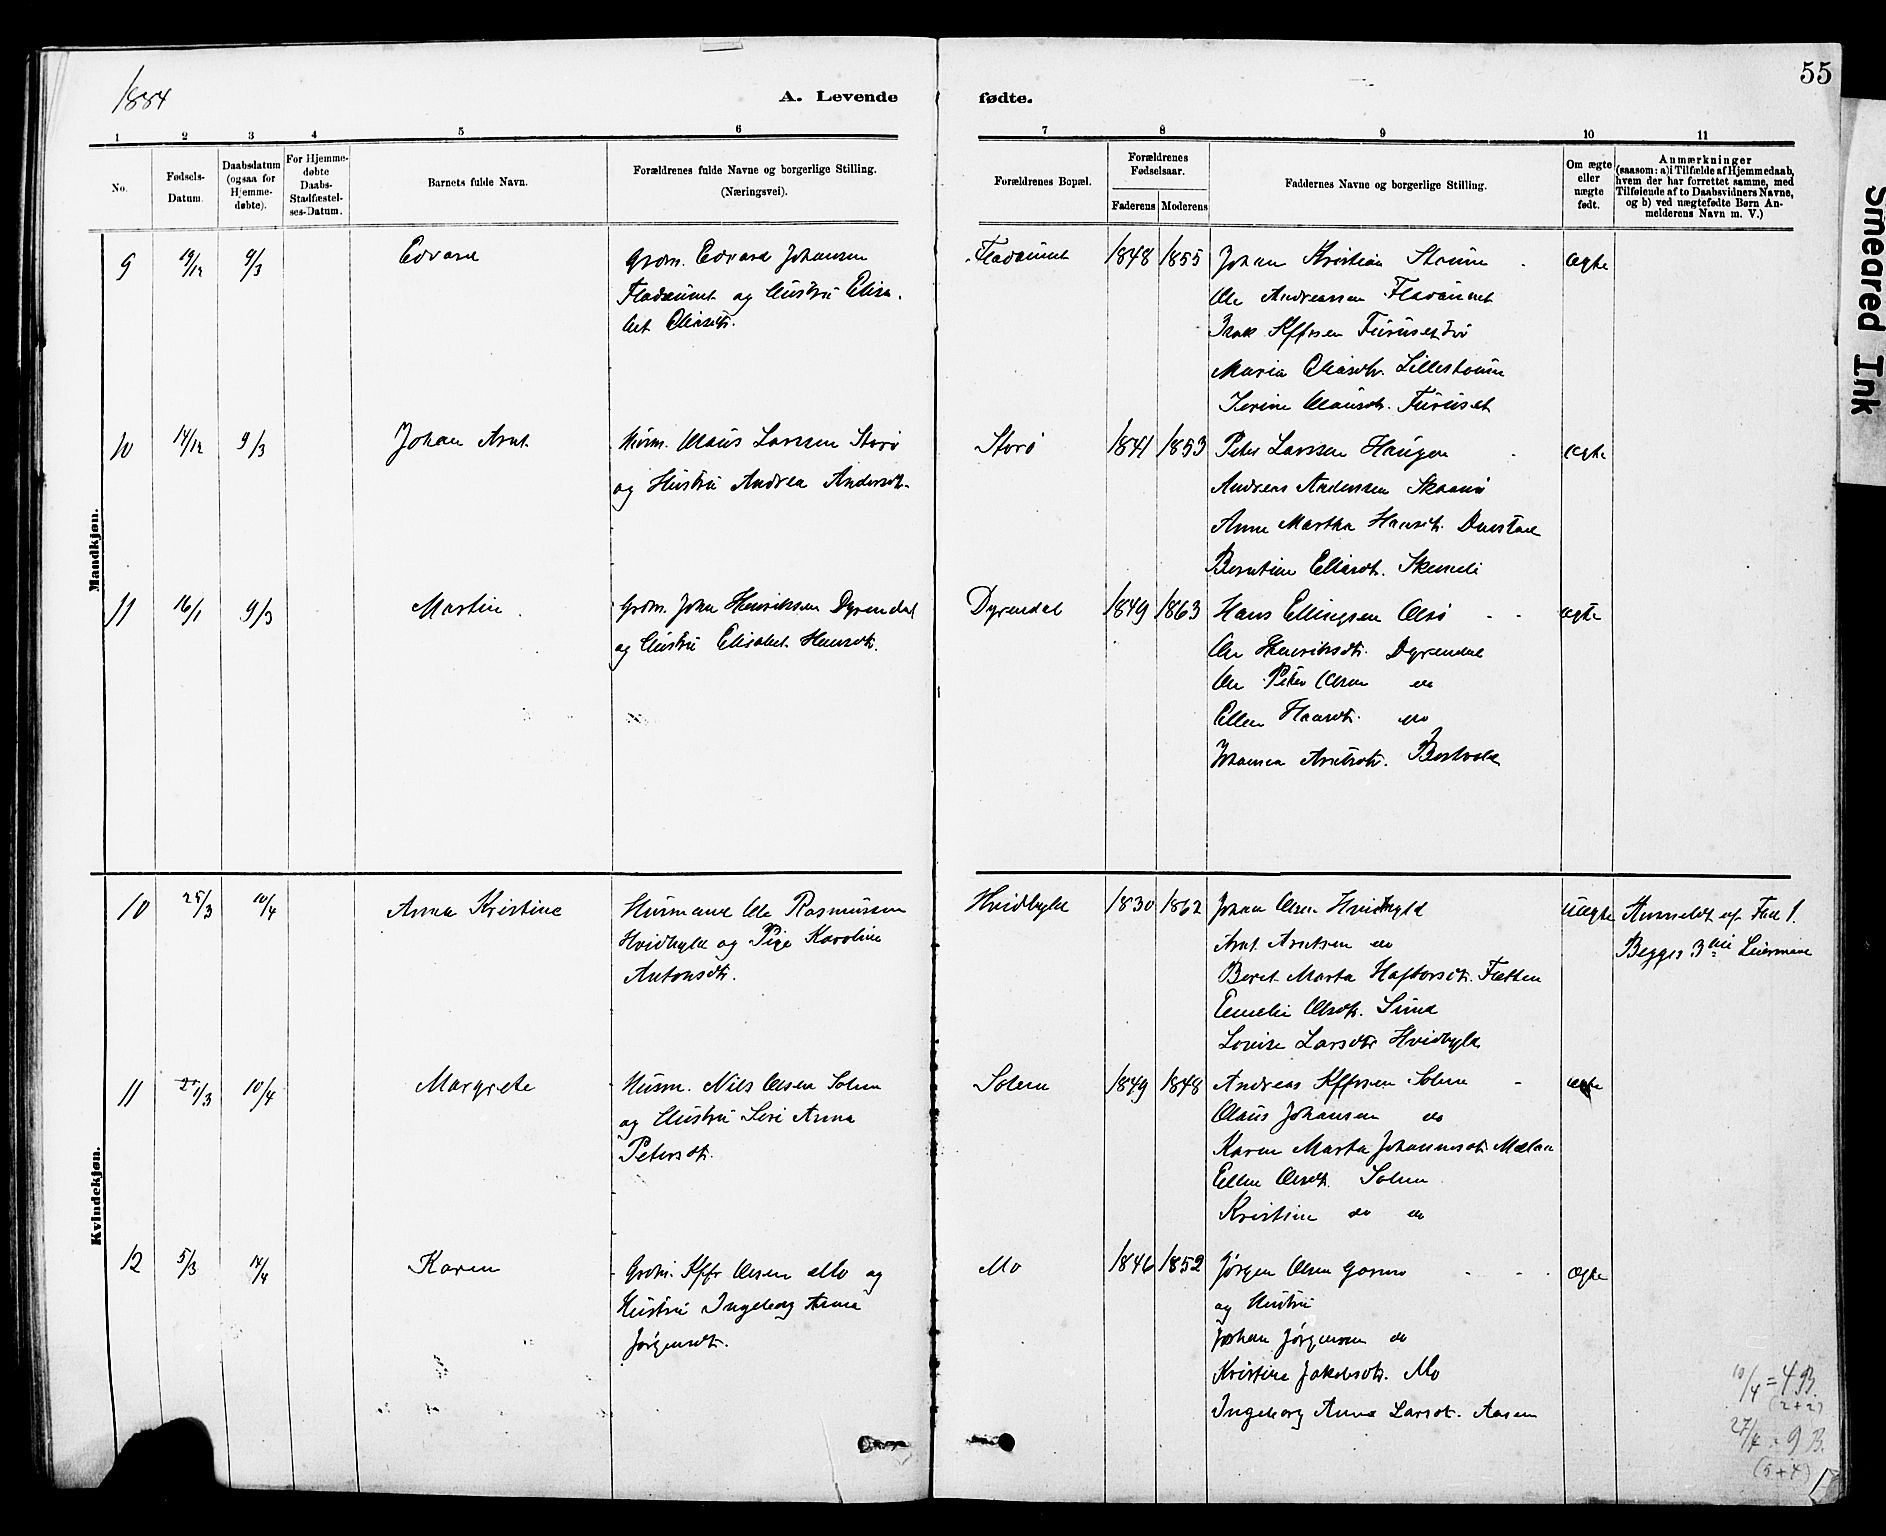 1884
A. Levende fødte.
55
1 2 3 4 5 6 7 8 9 10 11
No.
Fødsels-
Datum.
Daabsdatum
(ogsaa for
Hjemme-
døbte).
For Hjemme-
døbte
Daabs-
Stadfæstel-
ses-Datum.
Barnets fulde Navn.
Forældrenes fulde Navne og borgerlige Stilling.
(Næringsvei).
Forældrenes Bopæl.
Forældrenes
Fødselsaar.
Faderens Moderens
Faddernes Navne og borgerlige Stilling.
Om ægte
eller
nægte
født.
Anmærkninger
(saasom: a) i Tilfælde af Hjemmedaab,
hvem der har forrettet samme, med
Tilføiende af to Daabsvidners Navne,
og b) ved nægtefødte Børn An-
melderens Navn m. V.)
Mandkjøn.
9 19/12 9/3 Edvard
Grdm. Edvard Johansen
Fladaunet og Hustru Elisa
bet Oliasdtr.
Fladaunet 1848 1855
Johan Kristian Staune
Ole Andreassen Fladaunet
Isak Kffrsen Furuset
Maria Oliasdtr. Lillestaune
Serine Olausdtr. Furuset
ægte
10 14/12 9/3 Johan Arnt
Husm. Olaus Larssen Storø
og Hustru Andrea Andersdtr.
Storø 1841 1853
Peter Larssen Haugen
Andreas Anderssen
Anne Martha Hansdtr.
Berntine Eliasdtr.
ægte
11 16/1 9/3 Martin
Grdm. John Henriksen Dyrendal
og Hustru Elisabet Hansdtr.
Dyrendal 1849 1863
Hans Ellingsen Olsø
Ole Henriksdtr. Dyrendal
Ole Peter Olsen do
Ellen Hansdtr. do
Johanna Arntsdtr.
ægte
Kvindekjøn.
10 25/3 10/4 Anna Kristine
Husmand Ole Rasmussen
Hvidbyld og Pige Karoline
Antonsdtr.
Hvidbyld 1830 1862
Johan Olsen Hvidbyld
Arnt Arntsen do
Beret Marta Haftorsdtr. Fætten
Emelie Olsdtr. Sund
Lovise Larsdtr Hvidbyld
Uægte
Anmeldt af Fad 1.
Begges 3die Leiermaal
11 /3 10/4 Margrete
Husm. Nils Olsen Solem
og Hustru Seri Anna
Petersdtr.
Solem 1849 1848
Andreas Kffrsen Solem
Olaus Johansen do
Karen Marta Johannesdtr. Mælan
Ellen Olsdtr. Solem
Kristine do do
ægte
12 5/3 14/4 Karen
Grdm. Kffr Olsen Mo og
Hustru Ingeborg Anna
Jørgensdtr.
Mo 1846 1852
Jørgen Olsen Garmo
og Hustru
Johan Jørgensen do
Kristine Jakobsdtr. Mo
Ingeborg Anna Larsdtr. Aasen
ægte
10/4 = 4 B.
(2+2)
27/4 = 9 B.
(5+4)
Smeared Ink